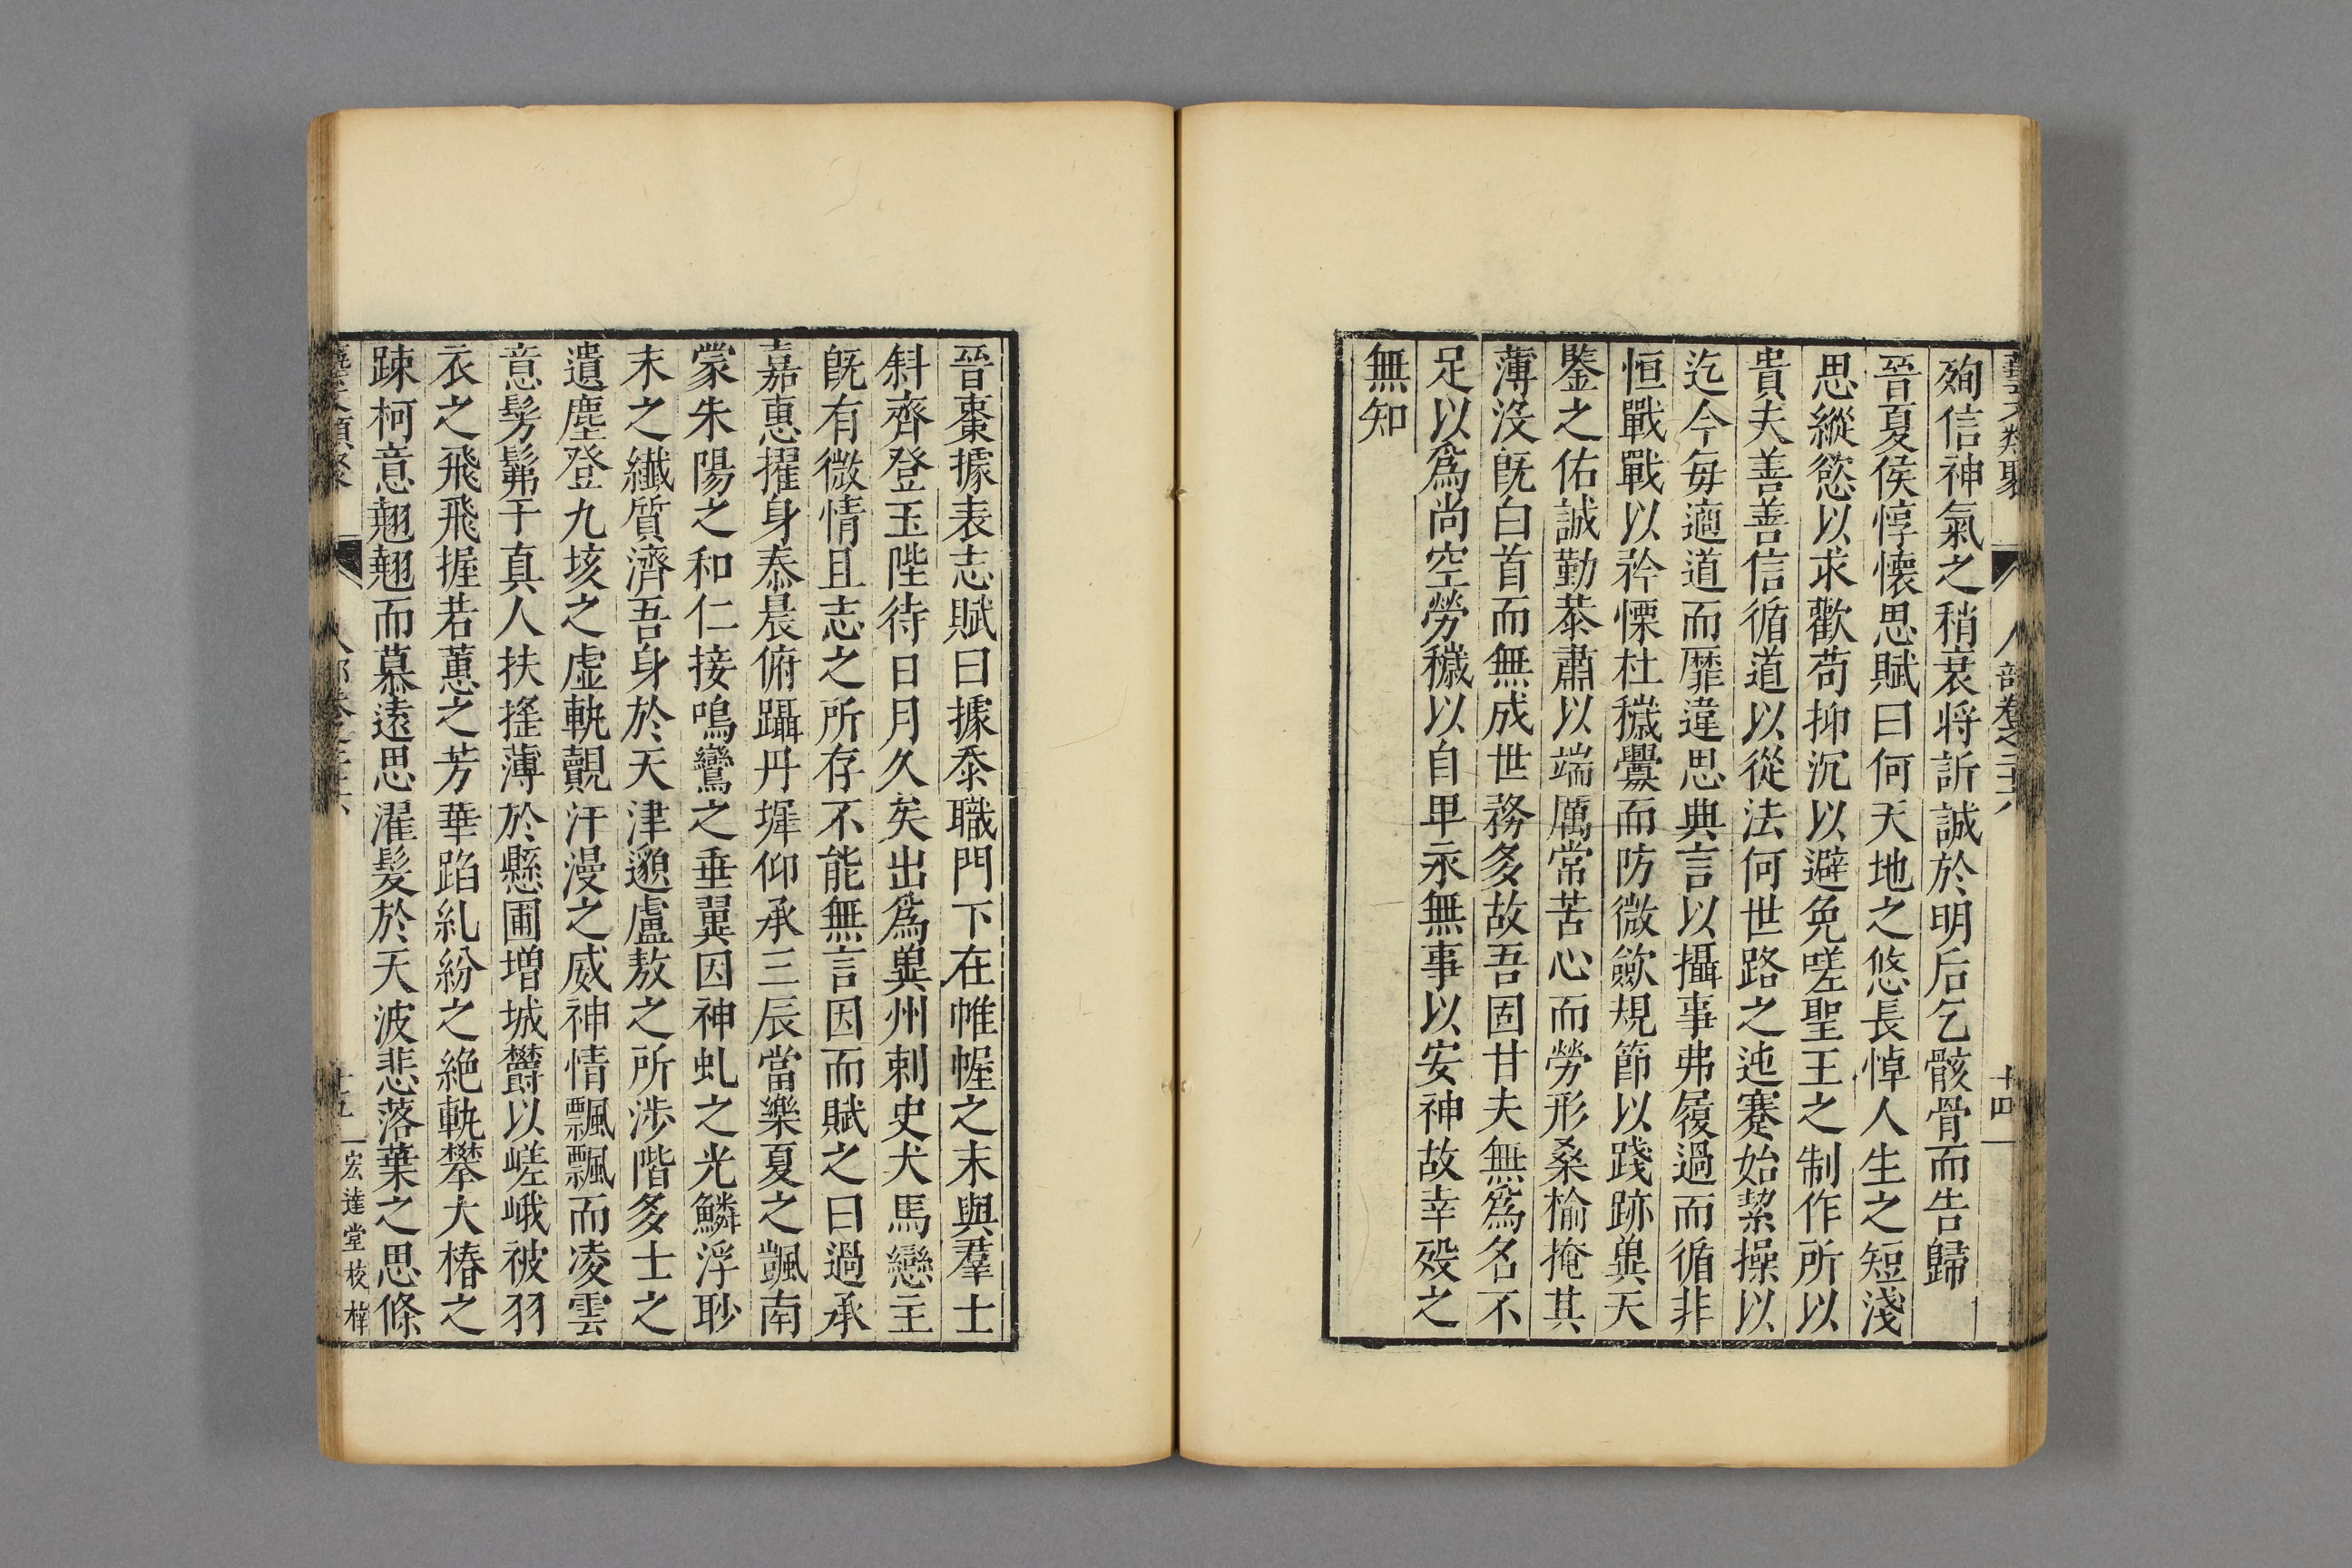 藝文類聚 人部卷之二十六 十四
殉信神氣之稍衰將訴誠於明后乞骸骨而告歸
晉夏侯惇懷思賦曰何天地之悠長悼人生之短淺
思縱慾以求歡苟抑沉以避免嗟聖王之制作所以
貴夫善善信循道以從法何世路之迍蹇始絜操以
迄今每遵道而靡違思典言以攝事弗履過而循非
恒戰戰以矜慄杜穢釁而防微歛規節以踐跡兾天
鑒之佑誠勤恭肅以端厲常苦心而勞形桑榆掩其
薄沒旣白首而無成世務多故吾固甘夫無爲名不
足以爲尚空勞穢以自卑永無事以安神故幸殁之
無知
晉棗據表志賦曰據忝職門下在帷幄之末與羣士
斜齊登玉陛待日月久矣出爲兾州剌史犬馬戀主
旣有微情且志之所存不能無言因而賦之曰過承
嘉惠擢身泰晨俯躡丹墀仰承三辰當樂夏之凱南
蒙朱陽之和仁接鳴鸞之垂翼因神虬之光鱗浮眇
末之纎質濟吾身於天津邈盧敖之所涉階多士之
遺塵登九垓之虛軌覿汗漫之威神情飄飄而凌雲
意髣髴于真人扶搖薄於懸圃增城欝以嵯峨被羽
衣之飛飛握若蕙之芳華蹈紛紛之絶軌攀大椿之
踈柯意翹翹而慕遠思濯髮於天波悲落葉之思條
人部卷之二十六 十五 宏達堂校梓